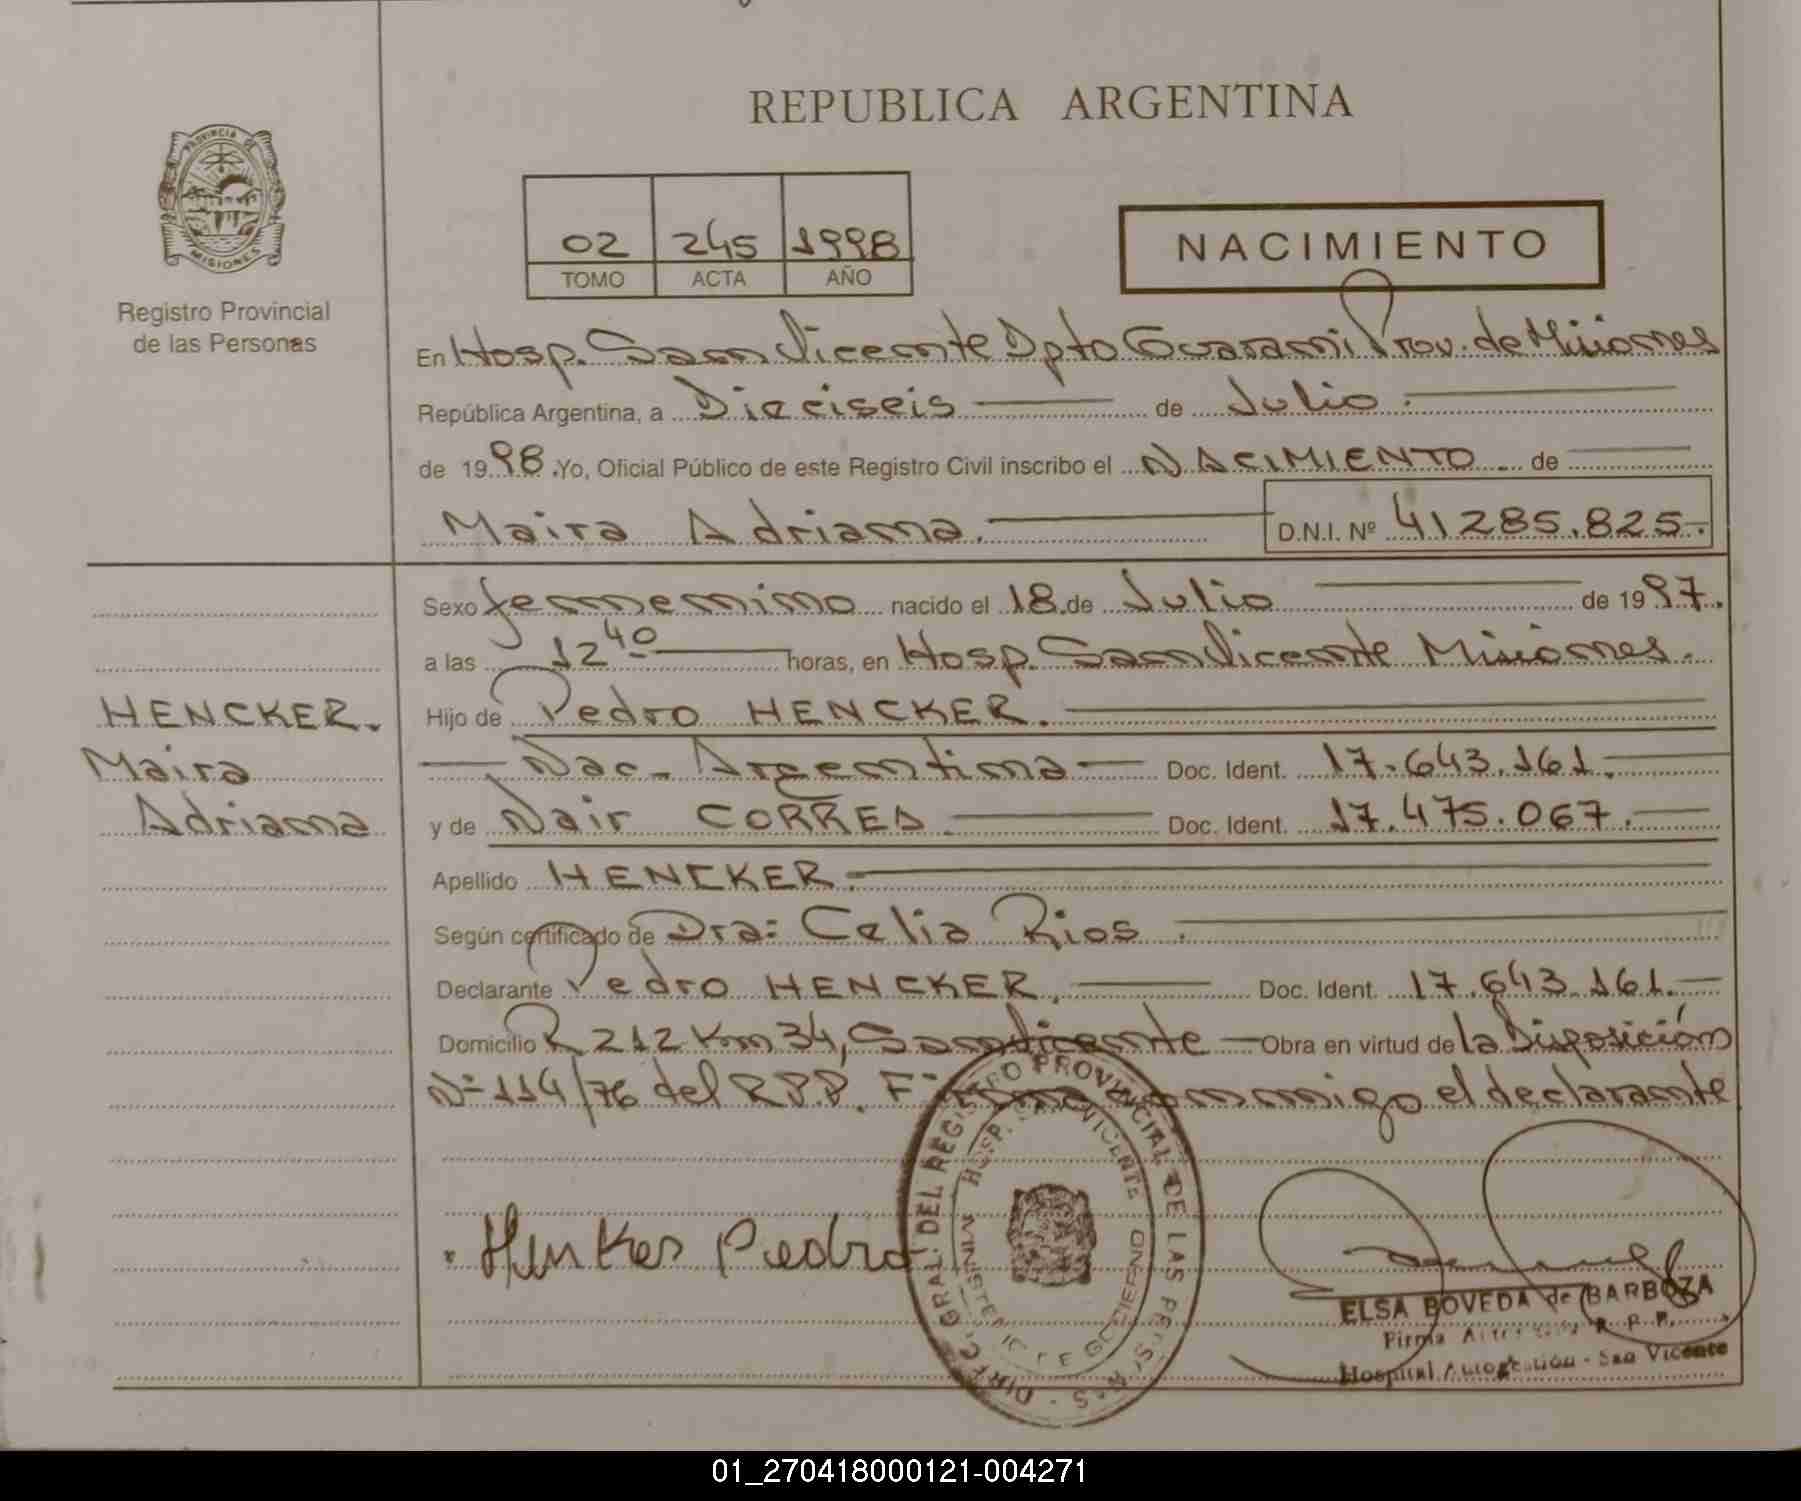 REPUBLICA ARGENTINA
PROVINCIA DE
MISIONES
Registro Provincial
de las Personas
02 245 1998
TOMO ACTA AÑO
NACIMIENTO
En Hosp. San Vicente Dpto Guarani Prov. de Misiones
República Argentina, a Dieciseis de Julio
de 1998. Yo, Oficial Público de este Registro Civil inscribo el NACIMIENTO de
Maira Adriana. D.N.I. Nº 41285.825.-
Sexo femenino nacido el 18 de Julio de 1997.
a las 12 40 horas, en Hosp. San Vicente Misiones.
HENCKER.
Maira
Adriana
Hijo de Pedro HENCKER.
Nac. Argentina Doc. Ident. 17.643.161.
y de Nair CORREA Doc. Ident. 17.475.067.
Apellido HENCKER.
Según certificado de Dra: Celia Rios.
Declarante Pedro HENCKER. Doc. Ident. 17.643.161.
Domicilio R 212 Km 34, San Vicente - Obra en virtud de la Disposición
Nº 114/76 del R.P.P. Firma conmigo el declarante
Henker Pedro
DIREC. GRAL. DEL REGISTRO PROVINCIAL DE LAS PERS.
HOSP. SAN VICENTE
MINISTERIO DE GOBIERNO
ELSA BOVEDA de BARBOZA
Firma R. P. P.
Hospital Autogestión - San Vicente
01_270418000121-004271